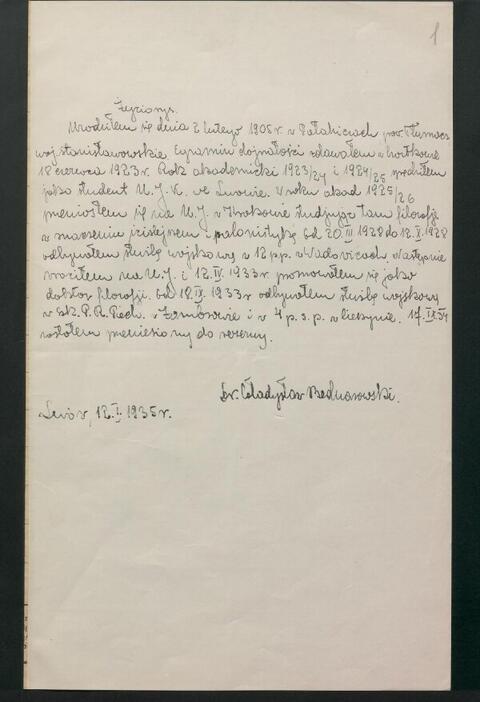 1
Życiorys.
Urodziłem się dnia 2 lutego 1905 r. w Pałahiczach pow. Tłumacz
woj. stanisławowskie. Egzamin dojrzałości zdawałem w
18 czerwca 1923 r. Rok akademicki 1923/24 i 1924/25 spędziłem
jako student U. J. K. we Lwowie. W roku akad 1925/26
przeniosłem się na U. J. w Krakowie studjując tam filozofję
w znaczeniu ściślejszem i polonistykę Od 20 1928 do 18. X. 1928
odbywałem służbę wojskową w 12 p.p. w Wadowicach. Następnie
wróciłem na U. J. i 12. IV. 1933 r. promowałem się jako
doktor filozofji. Od 18. IV. 1933 r odbywałem służbę wojskową
w szk. P. R. Piech. w Zambrowie i w 4 p. s. p. w Cieszynie. 17. IX. 34
zostałem przeniesiony do rezerwy.
Dr. Władysław Bednarowski.
Lwów, 12. I. 1935 r.